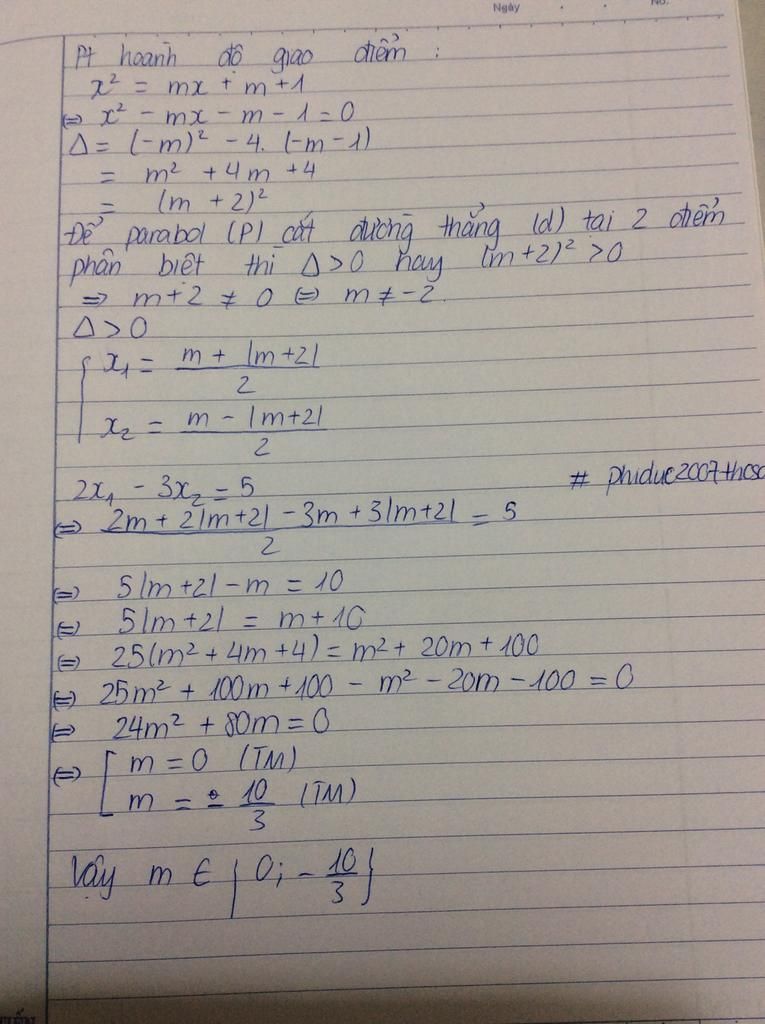 Ngày No.
Pt hoành độ giao điểm :
x² = mx + m + 1
⇔ x² - mx - m - 1 = 0
Δ = (-m)² - 4. (-m - 1)
= m² + 4m + 4
= (m + 2)²
Để parabol (P) cắt đường thẳng (d) tại 2 điểm
phân biệt thì Δ > 0 hay (m+2)² > 0
⇒ m + 2 ≠ 0 ⇔ m ≠ -2.
Δ > 0
{ x₁ = (m + |m+2|)/2
x₂ = (m - |m+2|)/2
2x₁ - 3x₂ = 5 # phiduc2007thcsa
⇔ (2m + 2|m+2| - 3m + 3|m+2|)/2 = 5
⇔ 5|m+2| - m = 10
⇔ 5|m+2| = m + 10
⇔ 25(m² + 4m + 4) = m² + 20m + 100
⇔ 25m² + 100m + 100 - m² - 20m - 100 = 0
⇔ 24m² + 80m = 0
⇔ [ m = 0 (TM)
m = - 10/3 (TM)
Vậy m ∈ { 0; - 10/3 }